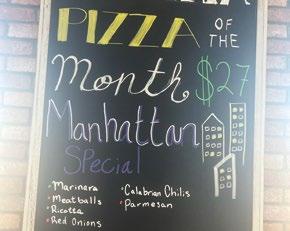 PIZZA OF
THE
Month $27
Manhattan
Special
• Marinara
• Meatballs
• Ricotta
• Red Onions
• Calabrian Chilis
• Parmesan